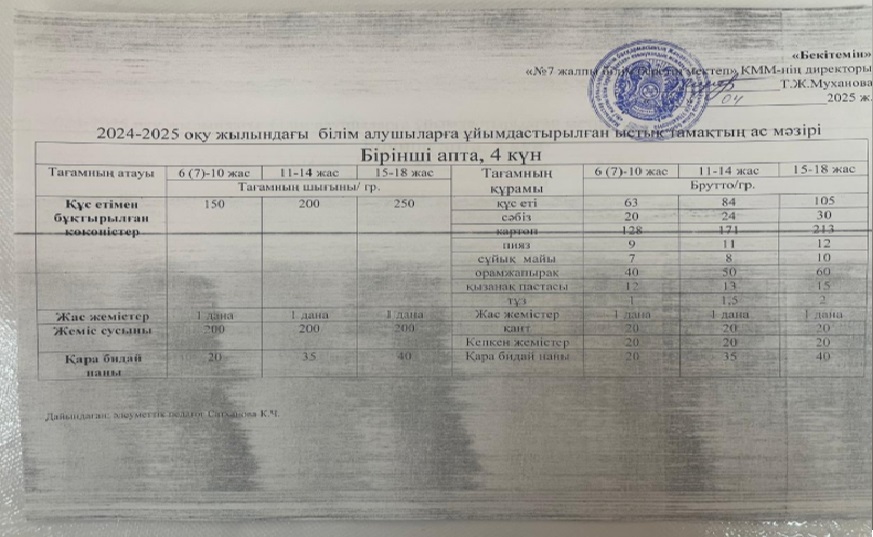 «Бекітемін»
«№7 жалпы білім беретін мектеп» КММ-нің директоры
Т.Ж.Муханова
04 2025 ж.
2024-2025 оқу жылындағы білім алушыларға ұйымдастырылған ыстық тамақтың ас мәзірі
Бірінші апта, 4 күн
Тағамның атауы 6 (7)-10 жас 11-14 жас 15-18 жас Тағамның құрамы 6 (7)-10 жас 11-14 жас 15-18 жас
Тағамның шығыны/ гр. Брутто/гр.
Құс етімен 150 200 250 құс еті 63 84 105
бұқтырылған сәбіз 20 24 30
көкөністер картоп 128 171 213
пияз 9 11 12
сұйық майы 7 8 10
орамжапырак 40 50 60
қызанақ пастасы 12 13 15
тұз 1 1,5 2
Жас жемістер 1 дана 1 дана 1 дана Жас жемістер 1 дана 1 дана 1 дана
Жеміс сусыны 200 200 200 қант 20 20 20
Кепкен жемістер 20 20 20
Қара бидай 20 35 40 Қара бидай наны 20 35 40
наны
Дайындаған: әлеуметтік педагог К.Ч.